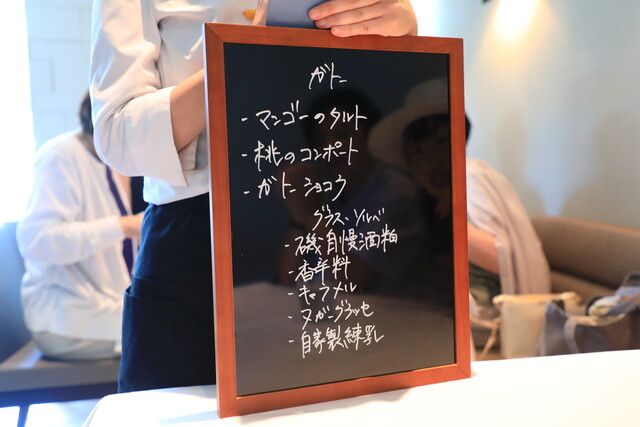 ガトー
- マンゴーのタルト
- 桃のコンポート
- ガトーショコラ
グラス、ソルベ
- 磯自慢酒粕
- 香辛料
- キャラメル
- ヌガーグラッセ
- 自家製練乳